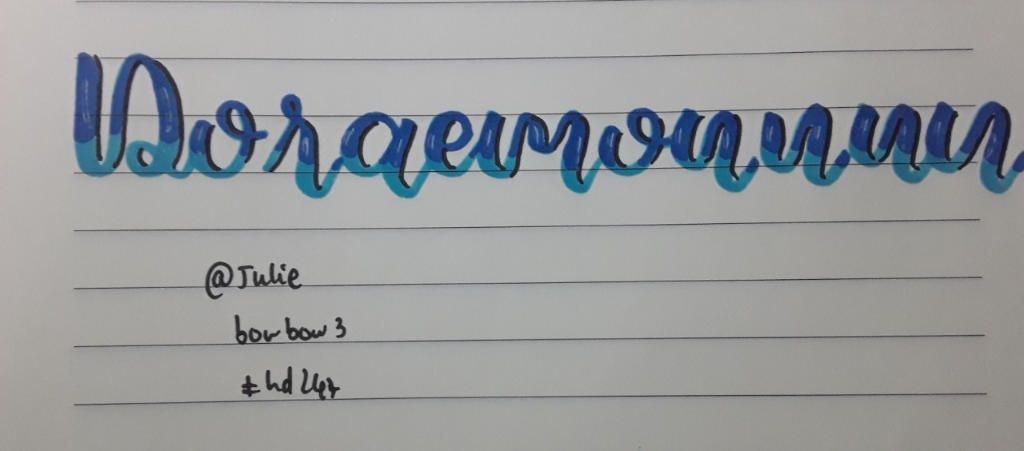 Doraemonnnn
@Julie
bowbow3
#hd247